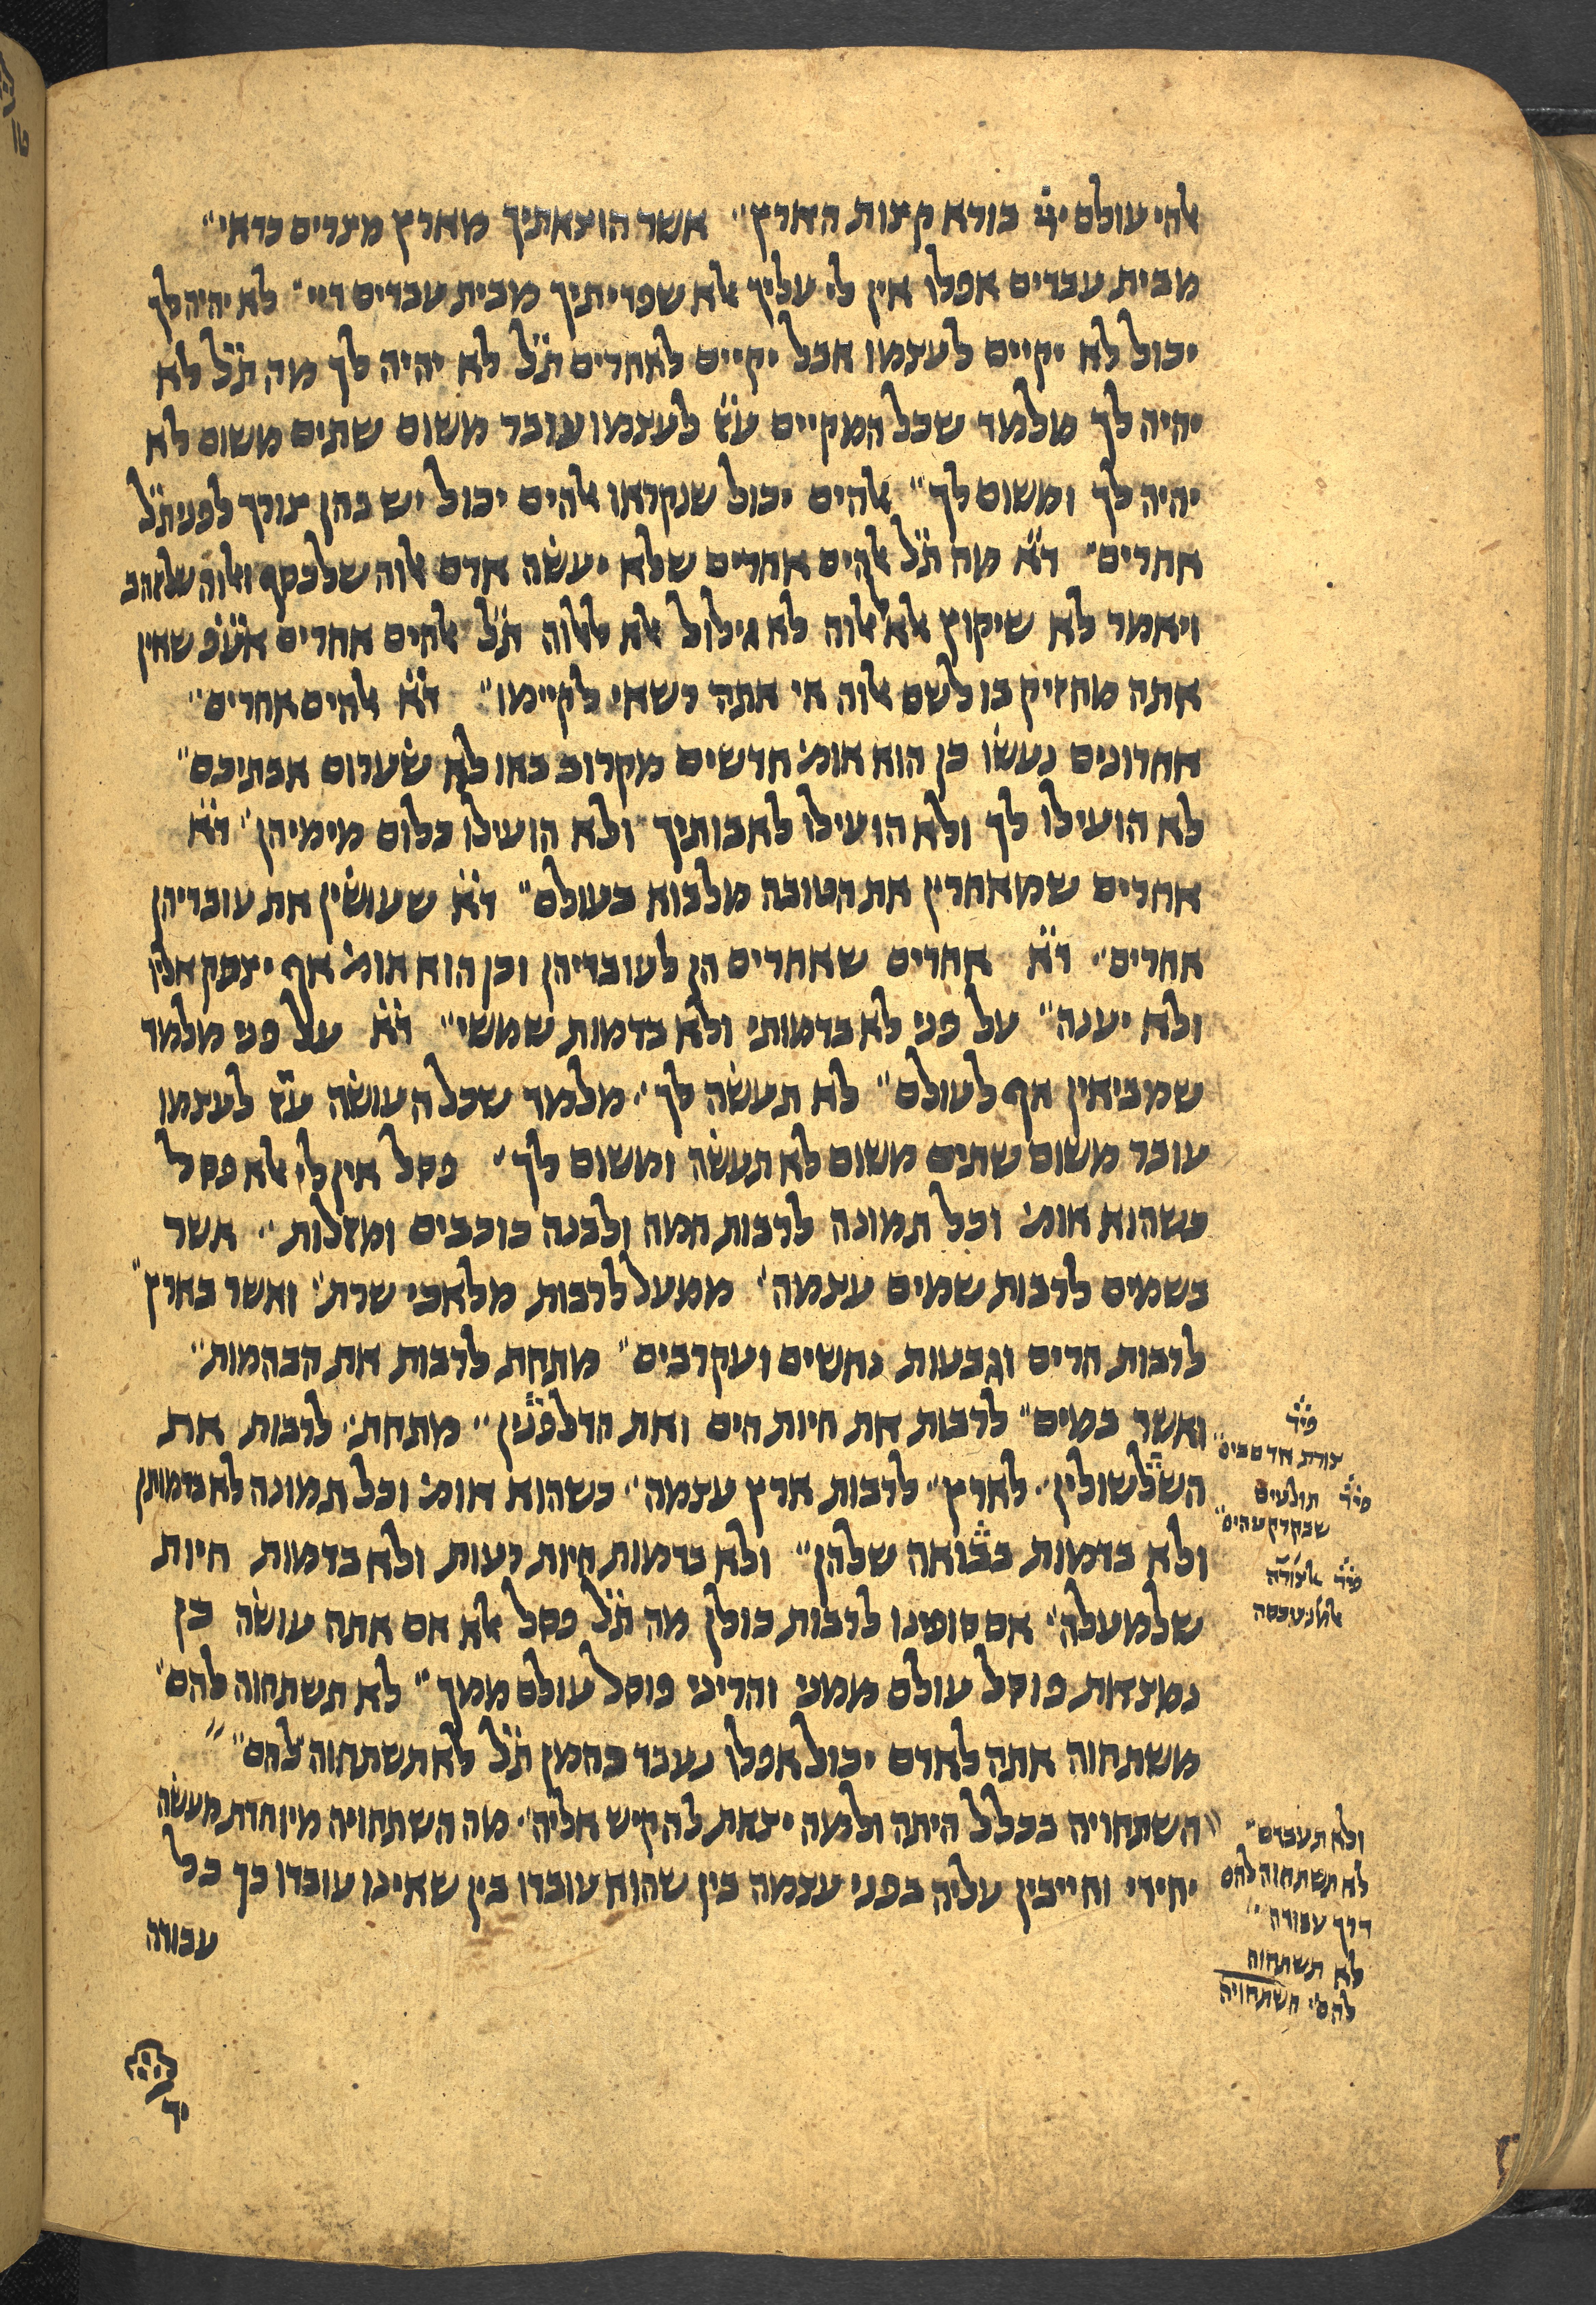 אלהי עולם ייי בורא קצות הארץ״ אשר הוצאתיך מארץ מצרים כדאי״
מבית עבדים אפלו אין לי עליך אלא שפדיתיך מבית עבדים דיי״ לא יהיה לך
יכול לא יקיים לעצמו אבל יקיים לאחרים ת״ל לא יהיה לך מה ת״ל לא
יהיה לך מלמד שכל המקיים ע״ז לעצמו עובר משום שתים משום לא
יהיה לך ומשום לך״ אלהים יכול שנקראו אלהים יכול יש בהן צורך לפני ת״ל
אחרים״ ד״א מה ת״ל אלהים אחרים שלא יעשה אדם אלוה שלכסף ואלוה שלזהב
ויאמר לא שיקוץ אלא אלוה לא גילול אלא אלוה ת״ל אלהים אחרים אע״פ שאין
אתה מחזיק בו לשם אלוה אי אתה רשאי לקיימו״ ד״א אלהים אחרים״
אחרונים נעשו כן הוא אומ׳ חדשים מקרוב באו לא שערום אבתיכם״
לא הועילו לך ולא הועילו לאבותיך ולא הועילו כלום מימיהן״ ד״א
אחרים שמאחרין את הטובה מלבוא בעולם״ ד״א שעושין את עובדיהן
אחרים״ ד״א אחרים שאחרים הן לעובדיהן וכן הוא אומ׳ אף יצעק אליו
ולא יענה״ על פני לא בדמותי ולא בדמות שמשי״ ד״א על פני מלמד
שמביאין אף לעולם״ לא תעשה לך״ מלמד שכל העושה ע״ז לעצמו
עובר משום שתים משום לא תעשה ומשום לך״ פסל אין לי אלא פסל
כשהוא אומ׳ וכל תמונה לרבות חמה ולבנה כוכבים ומזלות״ אשר
בשמים לרבות שמים עצמה״ ממעל לרבות מלאכי שרת״ ואשר בארץ״
לרבות הרים וגבעות נחשים ועקרבים״ מתחת לרבות את הבהמות״
ואשר במים״ לרבות את חיות הים ואת הדלפנין״ מתחת״ לרבות את
השלשולין״ לארץ״ לרבות ארץ עצמה״ כשהוא אומ׳ וכל תמונה לא בדמותן
ולא בדמות בבואה שלהן״ ולא בדמות חיות רעות ולא בדמות חיות
שלמעלה״ אם סופינו לרבות כולן מה ת״ל פסל אלא אם אתה עושה כן
נמצאת פוסל עולם ממני והריני פוסל עולם ממך״ לא תשתחוה להם״
משתחוה אתה לאדם יכול אפלו נעבד כהמן ת״ל לא תשתחוה להם״
השתחויה בכלל היתה ולמה יצאת להקיש אליה״ מה השתחויה מיוחדת מעשה
יחידי וחייבין עליה בפני עצמה בין שהוא עובדו בין שאינו עובדו כך כל
עבודה
פיר׳
צורת אדם בים״
פיר׳ תולעים
שבקרקע הים״
פיר׳
ולא תעבדם״
לא תשתחוה להם
דרך עבודה״
לא תשתחוה
להם״ השתחויה
יד